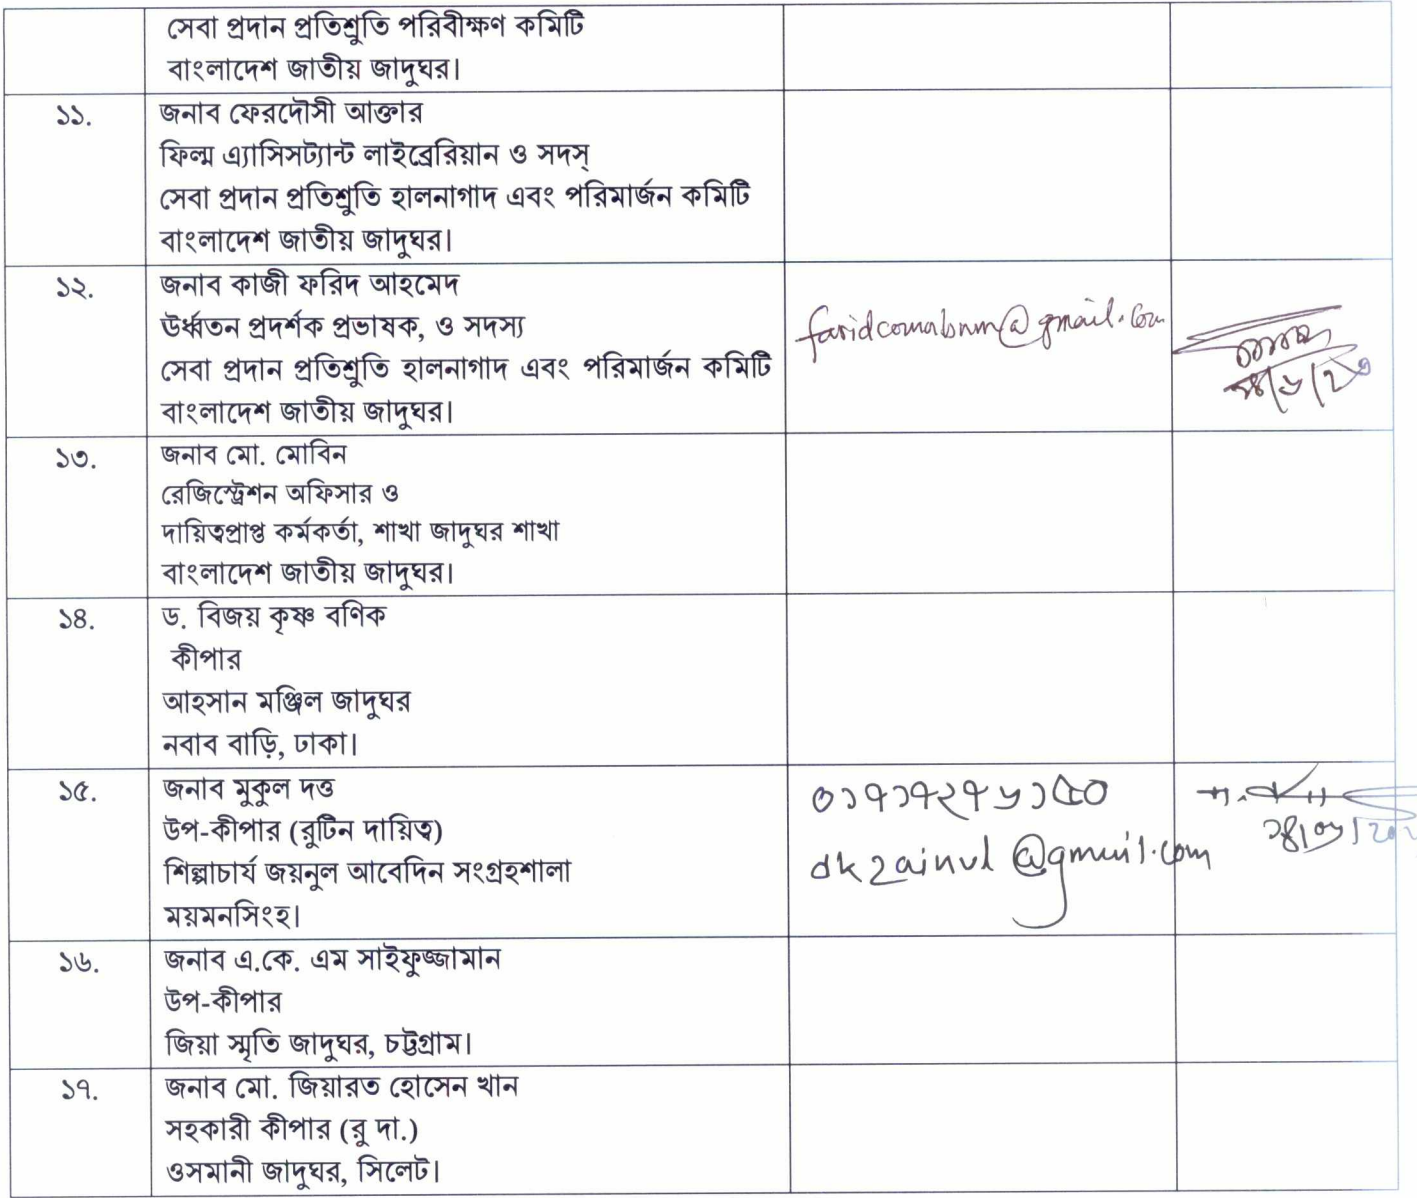 সেবা প্রদান প্রতিশ্রুতি পরিবীক্ষণ কমিটি
বাংলাদেশ জাতীয় জাদুঘর।
১১.
জনাব ফেরদৌসী আক্তার
ফিল্ম এ্যাসিসট্যান্ট লাইব্রেরিয়ান ও সদস্
সেবা প্রদান প্রতিশ্রুতি হালনাগাদ এবং পরিমার্জন কমিটি
বাংলাদেশ জাতীয় জাদুঘর।
১২.
জনাব কাজী ফরিদ আহমেদ
ঊর্ধ্বতন প্রদর্শক প্রভাষক, ও সদস্য
সেবা প্রদান প্রতিশ্রুতি হালনাগাদ এবং পরিমার্জন কমিটি
বাংলাদেশ জাতীয় জাদুঘর।
১৩.
জনাব মো. মোবিন
রেজিস্ট্রেশন অফিসার ও
দায়িত্বপ্রাপ্ত কর্মকর্তা, শাখা জাদুঘর শাখা
বাংলাদেশ জাতীয় জাদুঘর।
১৪.
ড. বিজয় কৃষ্ণ বণিক
কীপার
আহসান মঞ্জিল জাদুঘর
নবাব বাড়ি, ঢাকা।
১৫.
জনাব মুকুল দত্ত
উপ-কীপার (রুটিন দায়িত্ব)
শিল্পাচার্য জয়নুল আবেদিন সংগ্রহশালা
ময়মনসিংহ।
০১৭১৭২৭৬১৫০
dkzainul@gmail.com
১৬.
জনাব এ.কে. এম সাইফুজ্জামান
উপ-কীপার
জিয়া স্মৃতি জাদুঘর, চট্টগ্রাম।
১৭.
জনাব মো. জিয়ারত হোসেন খান
সহকারী কীপার (রু দা.)
ওসমানী জাদুঘর, সিলেট।